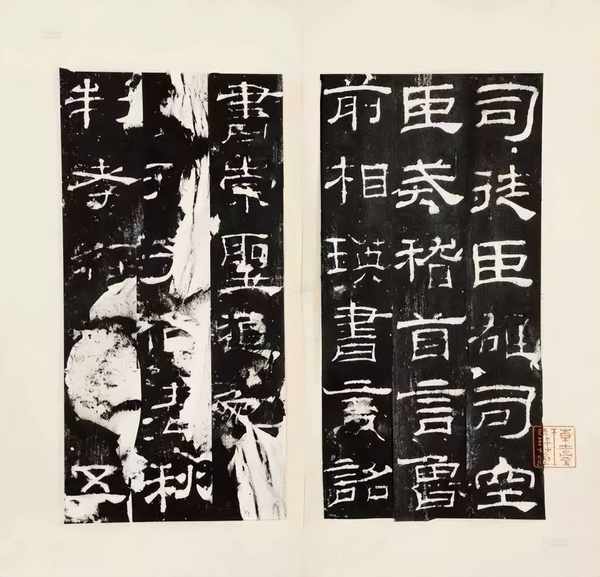 司徒臣雄司空
臣戒稽首言魯
前相瑛書言詔
書崇聖道勉
子作春秋
制孝五